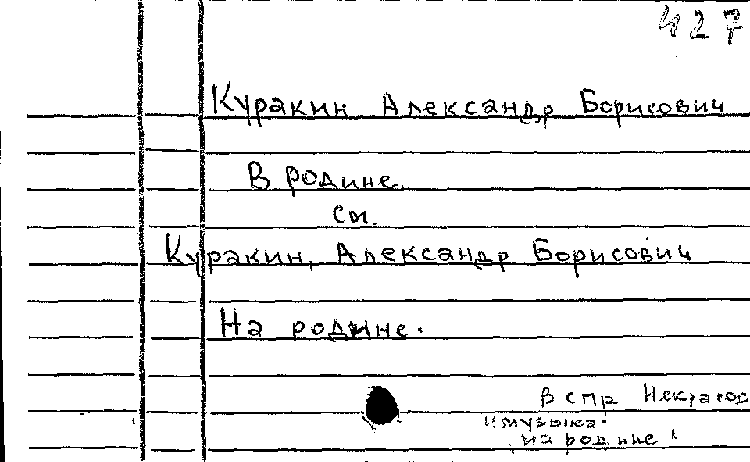 427
Куракин Александр Борисович
В родине
см.
Куракин, Александр Борисович
На родине.
В спр Некрасов
"Музыка.
на родине"